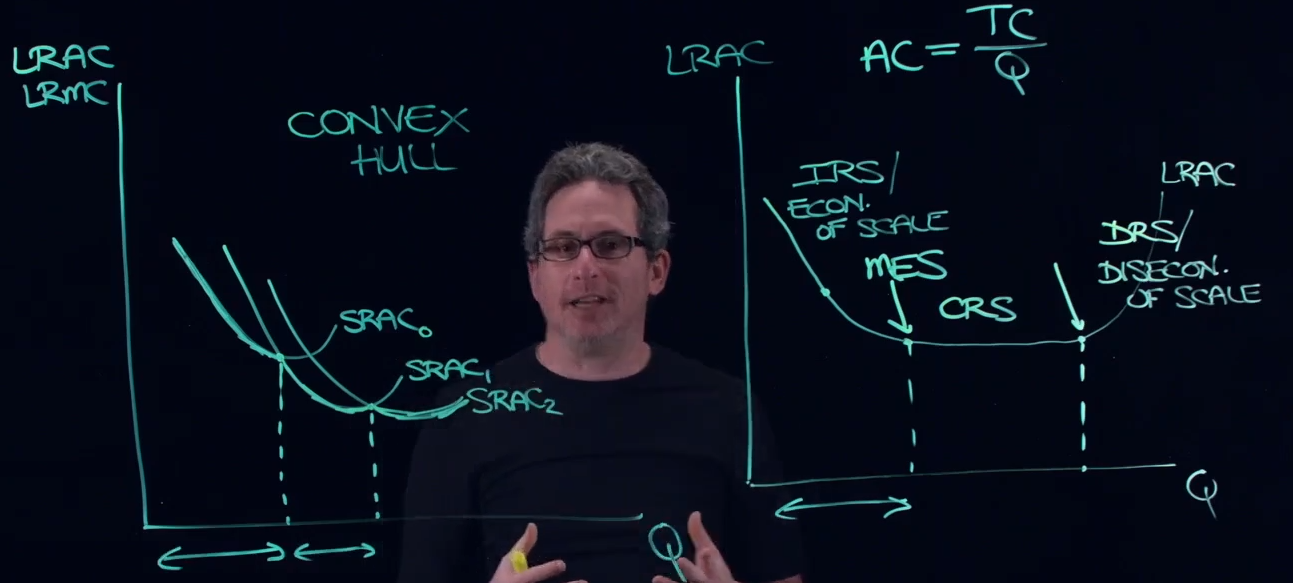 LRAC
LRMC
CONVEX
HULL
SRAC₀
SRAC₁
SRAC₂
Q
LRAC
AC = TC/Q
IRS/
ECON.
OF SCALE
MES
CRS
LRAC
DRS/
DISECON.
OF SCALE
Q